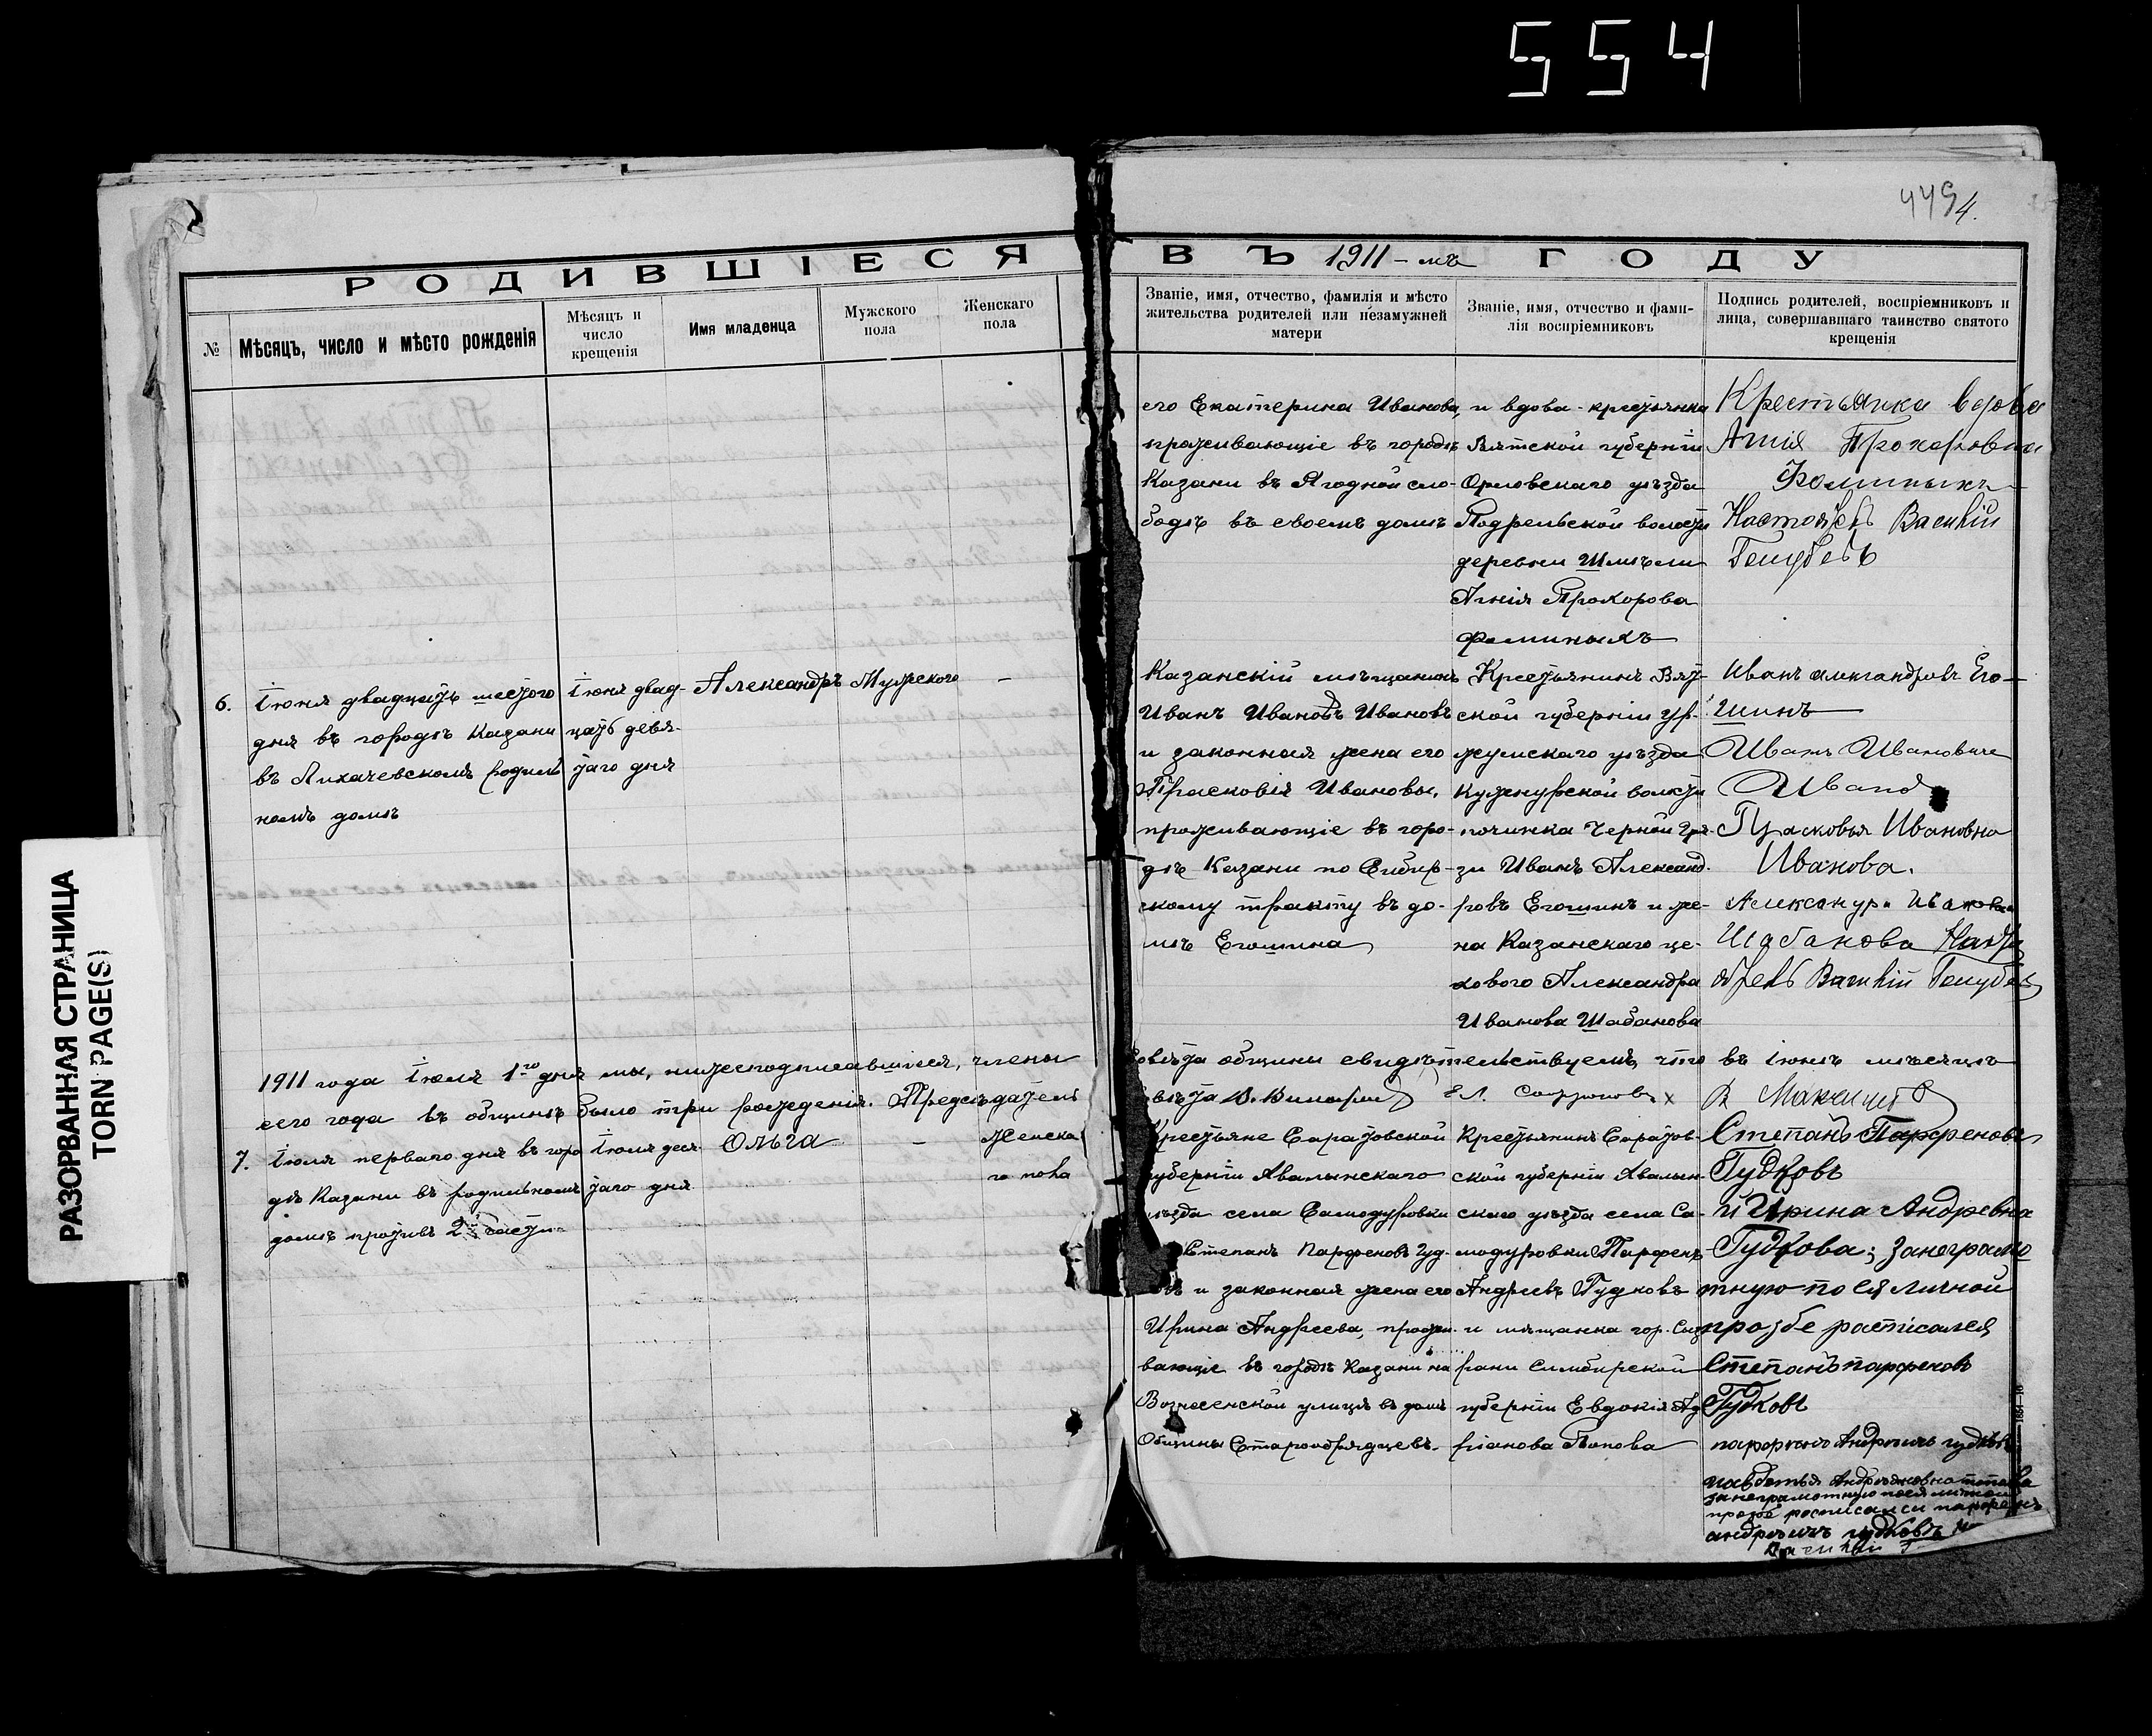 554
449 4.
РОДИВШІЕСЯ ВЪ 1911-мъ ГОДУ
№
Мѣсяцъ, число и мѣсто рожденія
Мѣсяцъ и
число
крещенія
Имя младенца
Мужского
пола
Женскаго
пола
Званіе, имя, отчество, фамилія и мѣсто
жительства родителей или незамужней
матери
Званіе, имя, отчество и фами-
лія воспріемниковъ
Подпись родителей, воспріемниковъ и
лица, совершавшаго таинство святого
крещенія
его Екатерина Иванова,
проживающіе въ городѣ
Казани въ Ягодной сло-
бодѣ въ своемъ домѣ
и вдова-крестьянка
Вятской губерніи
Орловскаго уѣзда
Подрельской волости
деревни Шмѣли
Агнія Прохорова
Фоминыхъ
Крестьянка вдова
Агнія Прохоровна
Фоминыхъ
Василій
Голубевъ
6.
Іюня двадцать шестого
дня въ городѣ Казани
въ Лихачевскомъ родиль
номъ домѣ
Іюня двад-
цать девя-
таго дня
Александръ
Мужского
-
Казанскій мѣщанинъ
Иванъ Ивановъ Ивановъ
и законная жена его
Прасковія Ивановы,
проживающіе въ горо-
дѣ Казани по Сибир-
скому тракту въ до-
мѣ Егошина
Крестьянинъ Вят-
ской губерніи Ур-
жумскаго уѣзда
Кужнурской волости
починка Черной Гря-
зи Иванъ Александ-
ровъ Егошинъ и же-
на Казанскаго це-
хового Александра
Иванова Шабанова
Иванъ Александровъ Его-
шинъ
Иванъ Ивановичъ
Прасковья Ивановна
Иванова.
Александра Иванова
Шабанова
Василій Голубевъ
1911 года Іюля 1го дня мы, нижеподписавшіеся, члены Совѣта общины свидѣтельствуемъ, что въ Іюнѣ мѣсяцѣ
сего года въ общинѣ было три рожденія. Предсѣдатель
7.
Іюля перваго дня въ горо
дѣ Казани въ родильномъ
домѣ противъ 2й части
Іюля деся-
таго дня
Ольга
-
Женска
го пола
Крестьяне Саратовской
губерніи Хвалынскаго
уѣзда села Самодуровки
Степанъ Парфеновъ Гуд-
ковъ и законная жена его
Ирина Андреева, прожи-
вающіе въ городѣ Казани на
Вознесенской улицѣ въ домѣ
Общины Старообрядцевъ.
Крестьянинъ Саратов-
ской губерніи Хвалын-
скаго уѣзда села Са-
модуровки Парфенъ
Андреевъ Гудковъ
и мѣщанка гор. Сыз
рани Симбирской
губерніи Евдокія Ад
ріанова Попова
Степанъ Парфеновъ
Гудковъ
и Ирина Андревна
Гудкова; занеграмо
тную по ея личной
прозбе расписался
Степанъ парфеновъ
Гудковъ
парфенъ Андреичъ гудковъ
занеграмотную поея личной
прозбе росписалси парфенъ
андреичъ гудковъ
РАЗОРВАННАЯ СТРАНИЦА
TORN PAGE(S)